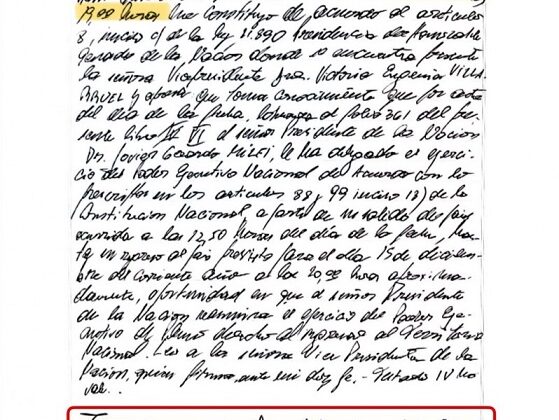 19,00 horas me constituyo de acuerdo al artículo
8, inciso c) de la ley 21.890 Presidencia del Honorable
Senado de la Nación donde se encuentra presente
la señora Vicepresidente Dra. Victoria Eugenia VILLA-
RRUEL y que toma conocimiento que por acta
del día de la fecha, labrada al folio 361 del pre-
sente libro IV VI el señor Presidente de la Nación
Dn. Javier Gerardo MILEI, le ha delegado el ejerci-
cio del Poder Ejecutivo Nacional de Acuerdo con lo
prescripto en los artículos 88 y 99 inciso 18) de la
Constitución Nacional, a partir de su salida del país
ocurrida a las 12,50 horas del día de la fecha, has-
ta su regreso al país previsto para el día 15 de diciem-
bre del corriente año a las 20,00 horas aproxima-
damente, oportunidad en que el señor Presidente
de la Nación reasumirá el ejercicio del Poder Eje-
cutivo de pleno derecho al ingresar al Territorio
Nacional. Leo a la señora Vice Presidenta de la
Nación, quien firma, ante mi doy fe. - Testado IV No
vale. -